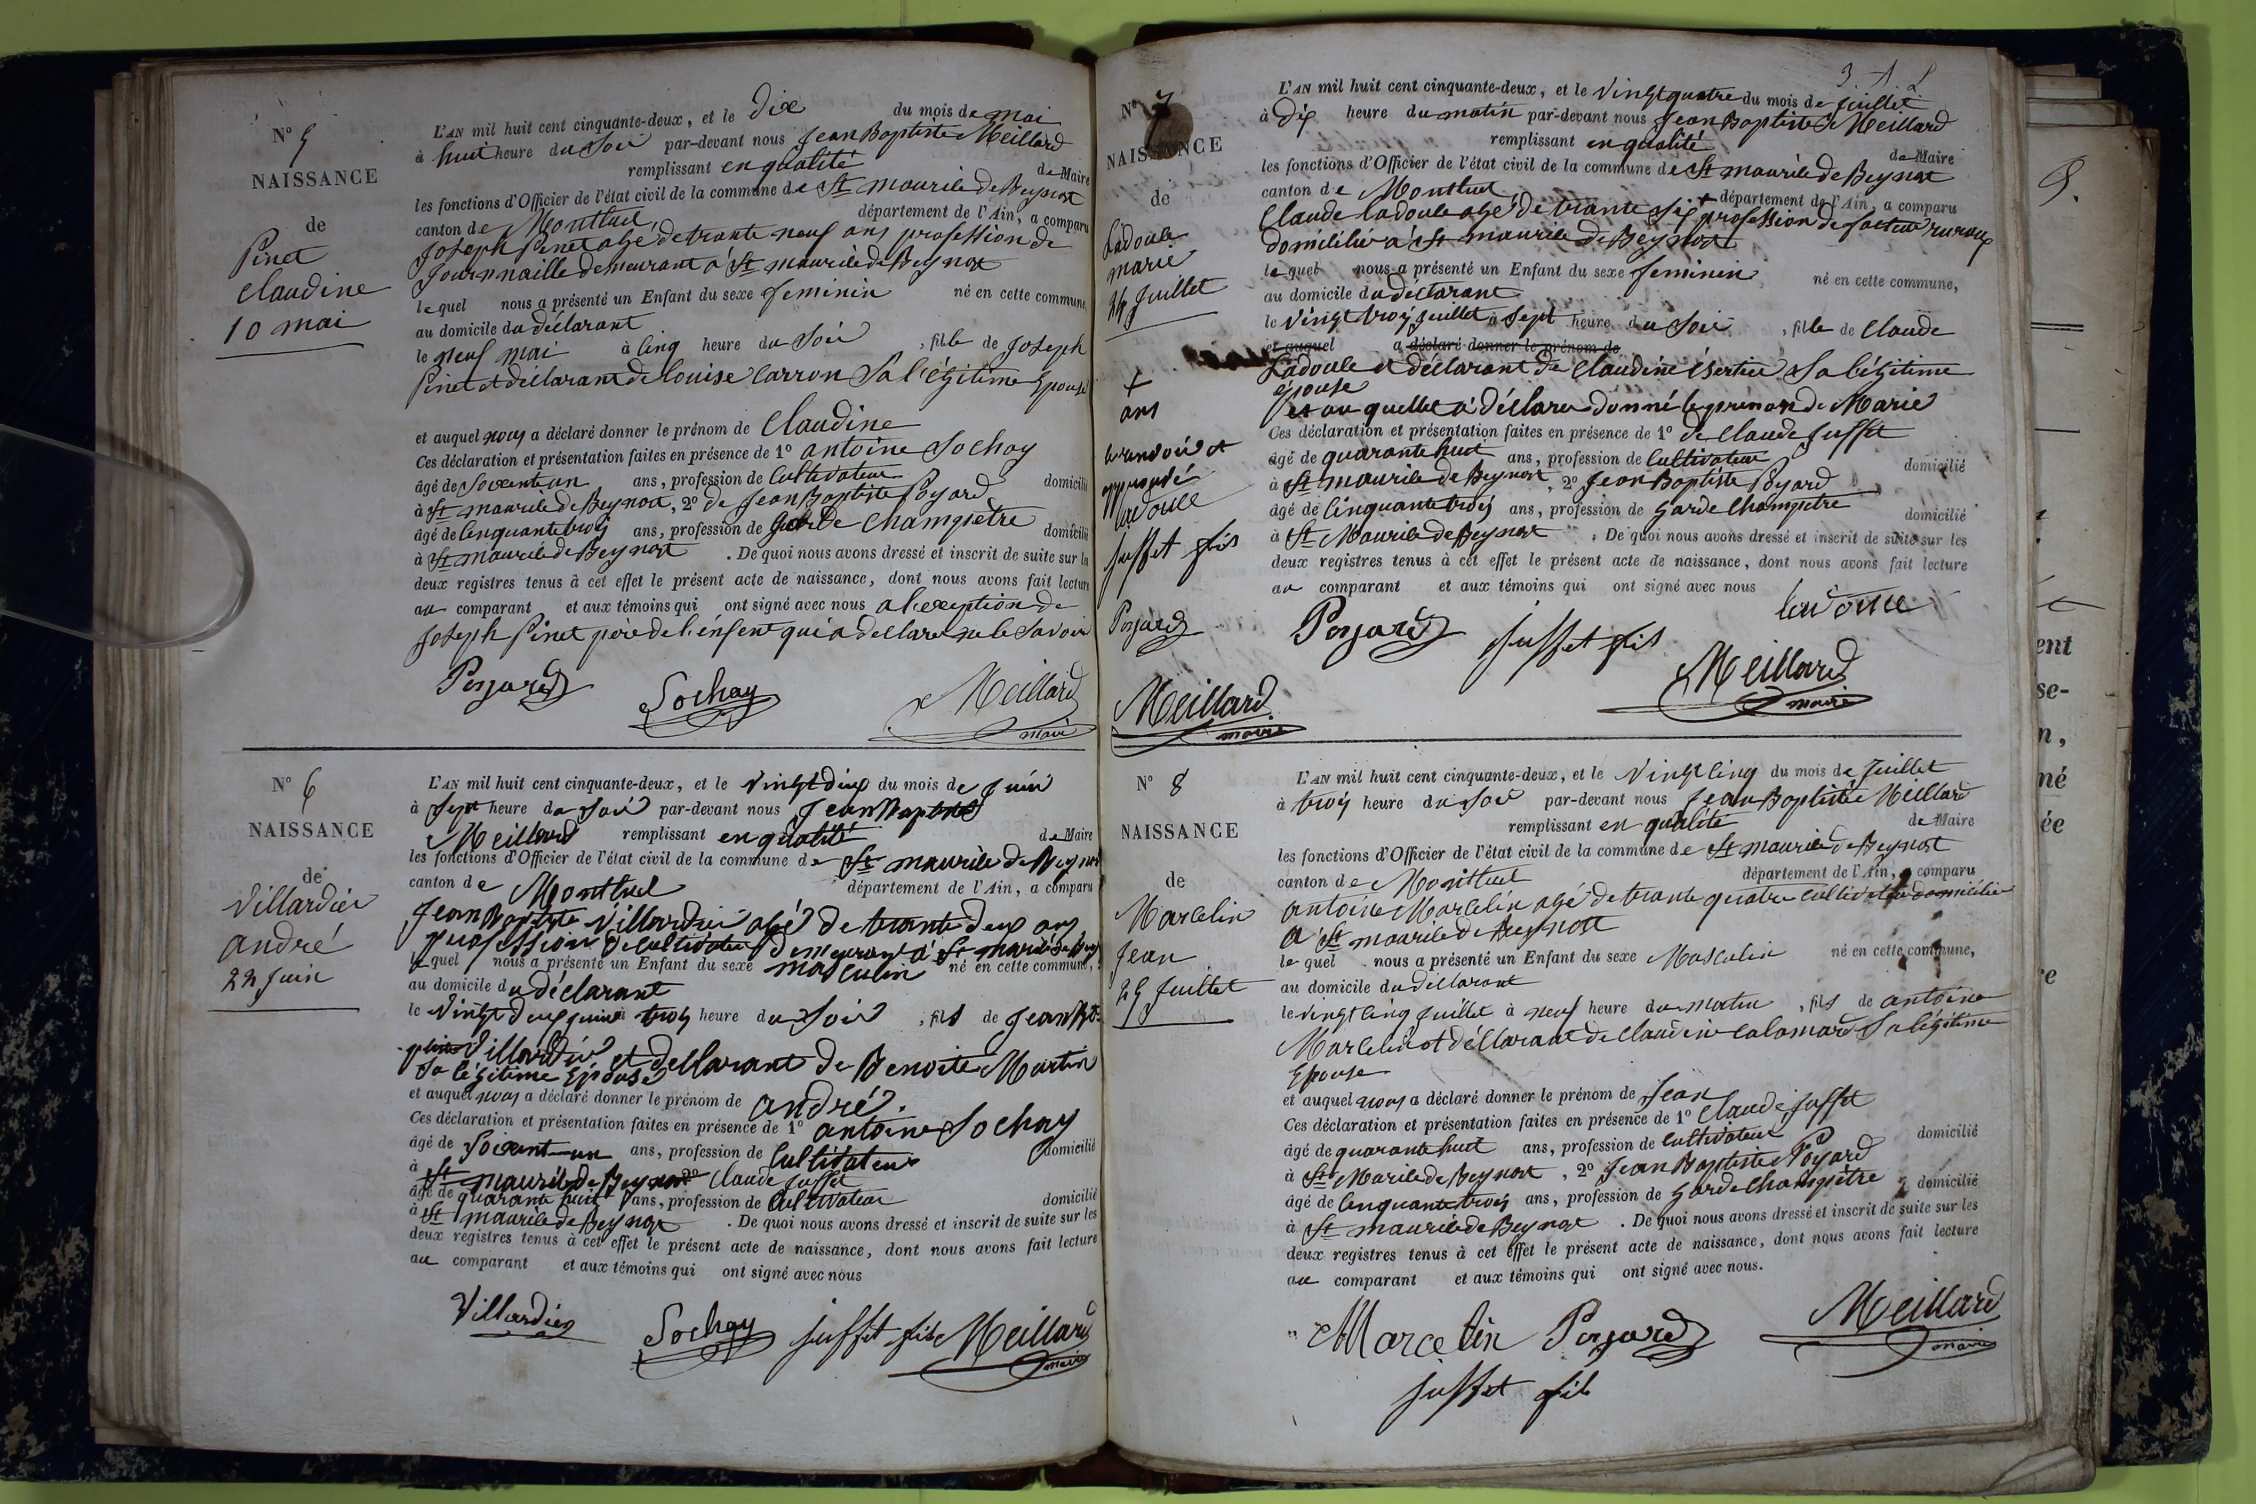 N° 5
NAISSANCE
de
Pinet
Claudine
10 mai
L'AN mil huit cent cinquante-deux, et le Dix du mois de mai
à huit heure du Soir par-devant nous Jean Baptiste Meillard
remplissant en qualité de Maire
les fonctions d'Officier de l'état civil de la commune de St maurice de Beynost
canton de Montluel département de l'Ain, a comparu
Joseph Pinet agé de trante neuf ans profession de
Journnaille demeurant a St maurice de Beynost
lequel nous a présenté un Enfant du sexe feminin né en cette commune,
au domicile du déclarant
le neuf mai à Cinq heure du Soir , fille de Joseph
Pinet et déclarant de Louise Carron Sa légitime Epouse
et auquel nous a déclaré donner le prénom de Claudine
Ces déclaration et présentation faites en présence de 1° antoine Sochay
âgé de Soixent un ans, profession de Cultivateur domicilié
à St maurice de Beynost, 2° de Jean Baptiste Poyard
âgé de Cinquante troiy ans, profession de Garde Champetre domicilié
à St maurice de Beynost . De quoi nous avons dressé et inscrit de suite sur les
deux registres tenus à cet effet le présent acte de naissance, dont nous avons fait lecture
au comparant et aux témoins qui ont signé avec nous a l'exeption de
Joseph Pinet père de l'enfent qui a declarer ne le Savoir
Poyard Sochay Meillard
maire
N° 6
NAISSANCE
de
Villardier
andré
22 Juin
L'AN mil huit cent cinquante-deux, et le vingt deux du mois de Juin
à Sept heure du Soir par-devant nous Jean Baptiste
Meillard remplissant en qualité de Maire
les fonctions d'Officier de l'état civil de la commune de St maurice de Beynost
canton de Montluel département de l'Ain, a comparu
Jean Baptiste Villardier agé de trante deux ans
profession de Cultivateur demeurant a St maurice de Bey
lequel nous a présenté un Enfant du sexe masculin né en cette commune,
au domicile du déclarant
le vingt deux juin à troiy heure du Soir , fils de Jean Bt
Villardier et declarant de Benoite Martin
Sa légitime Epouse
et auquel nous a déclaré donner le prénom de andré.
Ces déclaration et présentation faites en présence de 1° antoine Sochay
âgé de Soixant un ans, profession de Cultivateur domicilié
à St maurice de Beynost 2° Claude Juffet
âgé de quarante huit ans, profession de Cultivateur domicilié
à St maurice de Beynost . De quoi nous avons dressé et inscrit de suite sur les
deux registres tenus à cet effet le présent acte de naissance, dont nous avons fait lecture
au comparant et aux témoins qui ont signé avec nous
Villardier Sochay juffet fils Meillard
maire
N° 7
NAISSANCE
de
Ladoule
marie
24 Juillet
L'AN mil huit cent cinquante-deux, et le vingt quatre du mois de Juillet
à Dix heure du matin par-devant nous Jean Baptiste Meillard
remplissant en qualité de Maire
les fonctions d'Officier de l'état civil de la commune de St maurice de Beynost
canton de Montluel département de l'Ain, a comparu
Claude Ladoule agé de trante Six + profession de facteur ruraux
domicilier a St maurice de Beynost
lequel nous a présenté un Enfant du sexe feminin né en cette commune,
au domicile du déclarant
le vingt troiy juillet à Sept heure du Soir , fille de Claude
et auquel a déclaré donner le prénom de
Ladoule et déclarant de Claudine Sa légitime
épouse
et au quelle a déclarer donné le prénom de Marie
Ces déclaration et présentation faites en présence de 1° de Claude Juffet
âgé de quarante huit ans, profession de Cultivateur domicilié
à St maurice de Beynost, 2° Jean Baptiste Poyard
âgé de Cinquante troiy ans, profession de Garde Champetre domicilié
à St Maurice de Beynost . De quoi nous avons dressé et inscrit de suite sur les
deux registres tenus à cet effet le présent acte de naissance, dont nous avons fait lecture
au comparant et aux témoins qui ont signé avec nous
ladoule
Poyard juffet fils
Meillard
maire
+
ans
ladoule
juffet fils
Poyard
Meillard
maire
N° 8
NAISSANCE
de
Marcelin
Jean
25 Juillet
L'AN mil huit cent cinquante-deux, et le vingt Cinq du mois de Juillet
à troiy heure du Soir par-devant nous Jean Baptiste Meillard
remplissant en qualité de Maire
les fonctions d'Officier de l'état civil de la commune de St maurice de Beynost
canton de Montluel département de l'Ain, a comparu
antoine Marcelin agé de trante quatre cultivateur domicilier
a St maurice de Beynost
lequel nous a présenté un Enfant du sexe Masculin né en cette commune,
au domicile du déclarant
le vingt Cinq Juillet à neuf heure du matin , fils de antoine
Marcelin et déclarant de Claudine Calamard Sa légitime
Epouse
et auquel nous a déclaré donner le prénom de Jean
Ces déclaration et présentation faites en présence de 1° Claude Juffet
âgé de quarante huit ans, profession de Cultivateur domicilié
à St Maurice de Beynost, 2° Jean Baptiste Poyard
âgé de Cinquante troiy ans, profession de Garde Champetre domicilié
à St maurice de Beynost . De quoi nous avons dressé et inscrit de suite sur les
deux registres tenus à cet effet le présent acte de naissance, dont nous avons fait lecture
au comparant et aux témoins qui ont signé avec nous.
Marcelin Poyard Meillard
maire
juffet fils